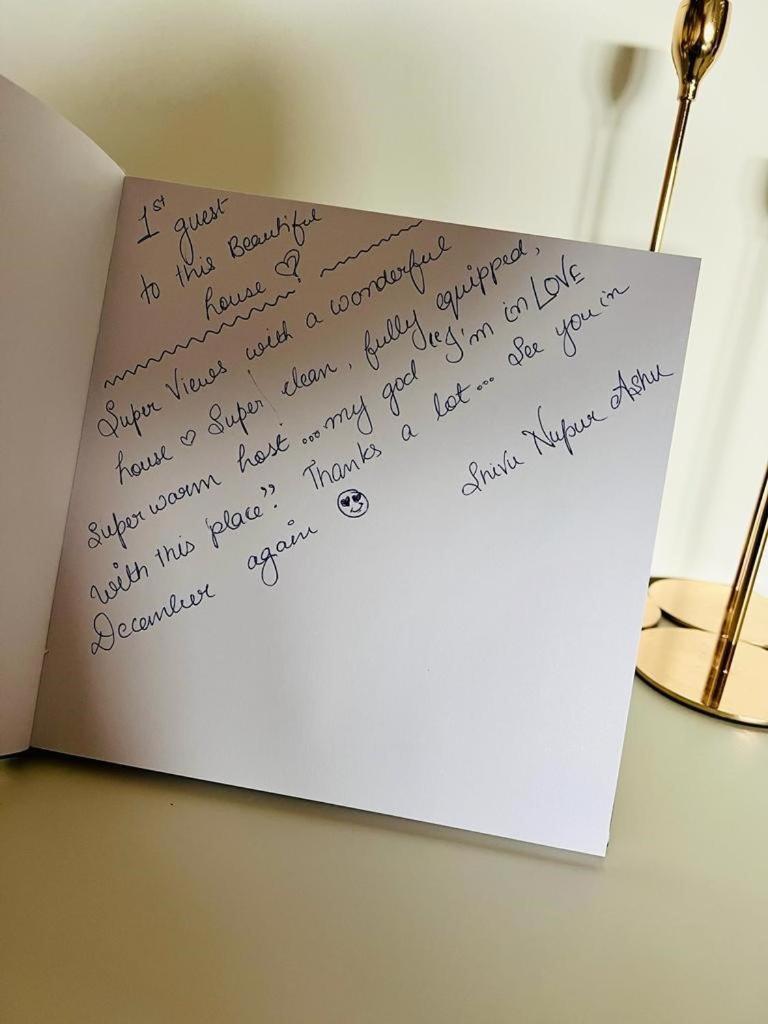 1st guest
to this Beautiful
house ♡
Super Views with a wonderful
house ♡ Super clean, fully equipped,
Super warm host ... my god "I'm in LOVE
with this place" Thanks a lot... See you in
December again 😍
Shivu Nupur Ashu